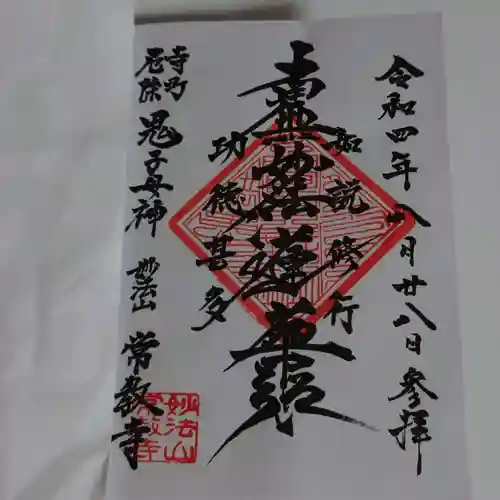 令和四年八月廿八日参拝
如説修行
南無妙法蓮華経
功徳甚多
寺町
厄除
鬼子母神
妙法山
常教寺
妙法山
常教寺